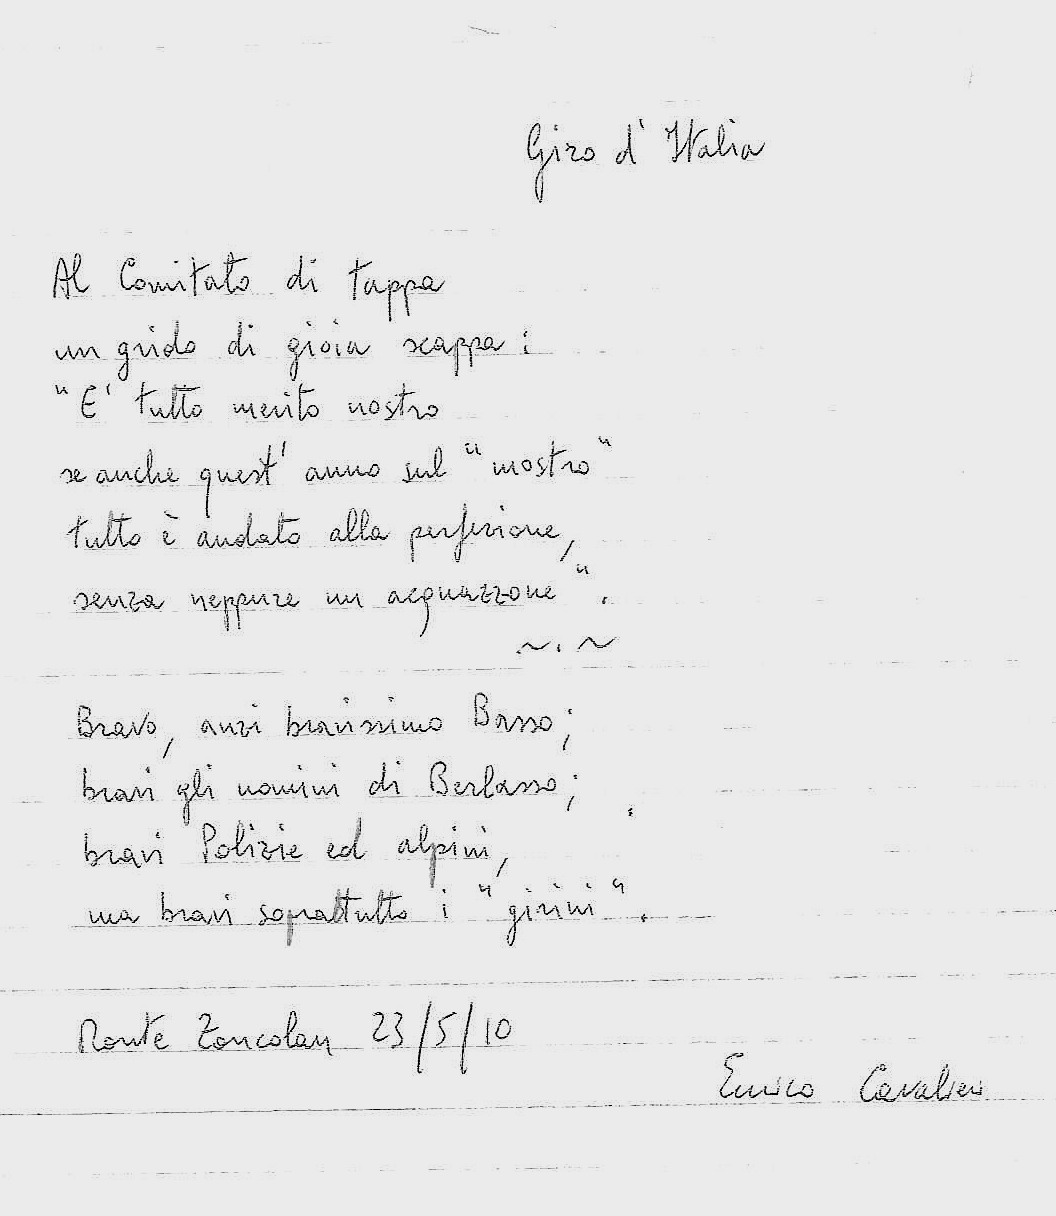 Giro d'Italia
Al Comitato di tappa
un grido di gioia scappa:
"E' tutto merito nostro
se anche quest'anno sul "mostro"
tutto è andato alla perfezione,
senza neppure un acquazzone".
~.~
Bravo, anzi bravissimo Basso;
bravi gli uomini di Berlasso;
bravi Polizie ed alpini,
ma bravi soprattutto i "girini".
Monte Zoncolan 23/5/10
Enrico Cavalieri